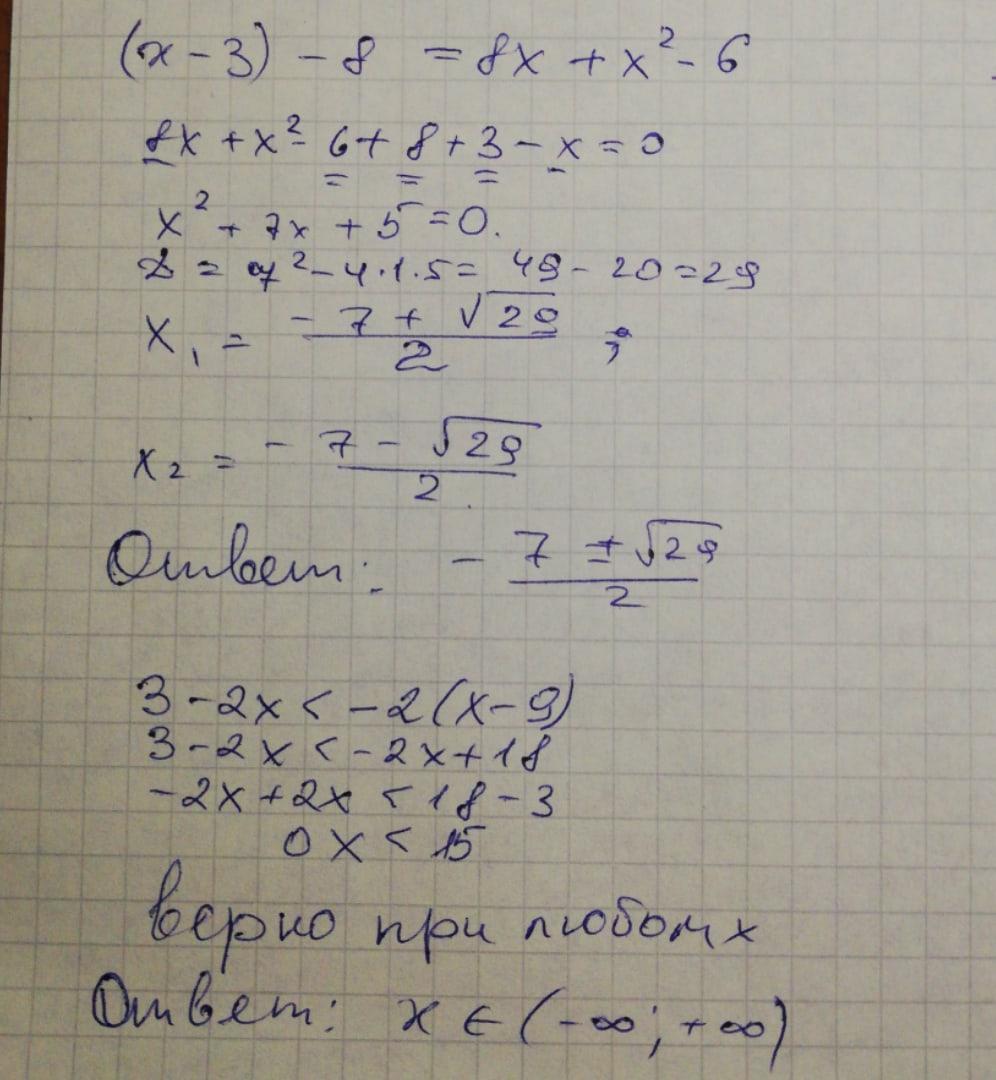 (x - 3) - 8 = 8x + x² - 6
8x + x² - 6 + 8 + 3 - x = 0
x² + 7x + 5 = 0.
D = 7² - 4·1·5 = 49 - 20 = 29
x₁ = (-7 + √29)/2 ;
x₂ = (-7 - √29)/2.
Ответ: (-7 ± √29)/2
3 - 2x < -2(x - 9)
3 - 2x < -2x + 18
-2x + 2x < 18 - 3
0x < 15
верно при любом x
Ответ: x ∈ (-∞; +∞)